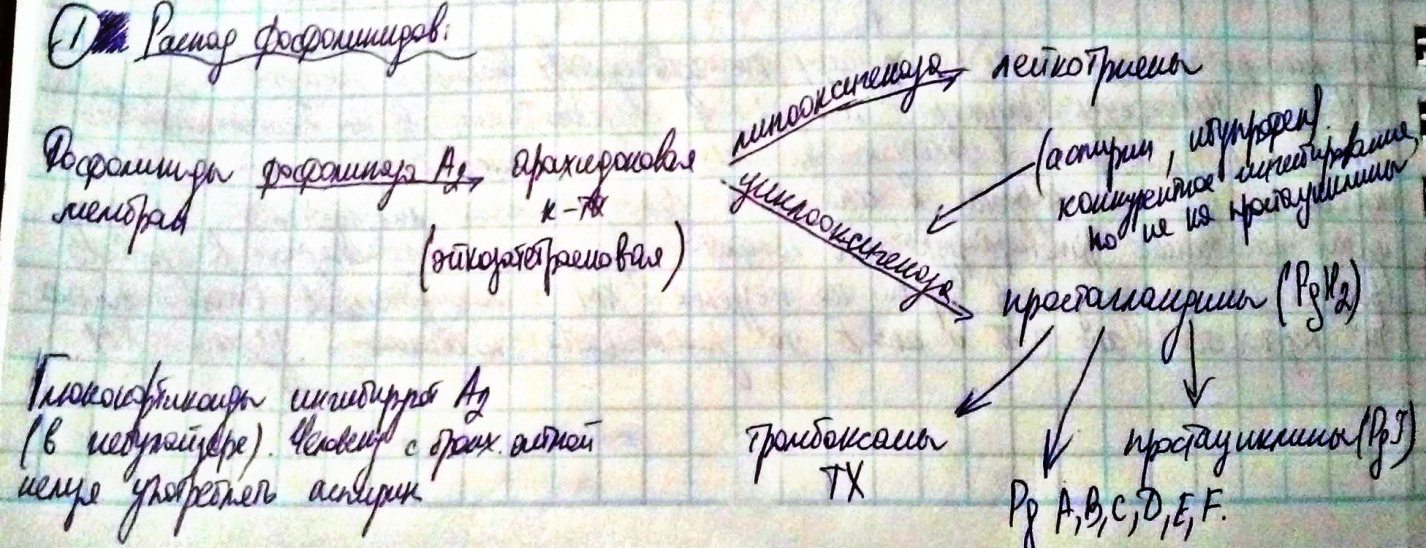 1 Распад фосфолипидов:
Фосфолипиды
мембран
фосфолипаза A2
арахидоновая
к-та
(эйкозатетраеновая)
липооксигеназа
лейкотриены
циклооксигеназа
(аспирин, ибупрофен)
конкурентное ингибирование,
но не на простациклины
простагландины (PgH2)
тромбоксаны
TX
Pg A,B,C,D,E,F.
простациклины (PgI)
Глюкокортикоиды ингибируют A2
(в небулайзере). Человеку с бронх. астмой
нельзя употреблять аспирин